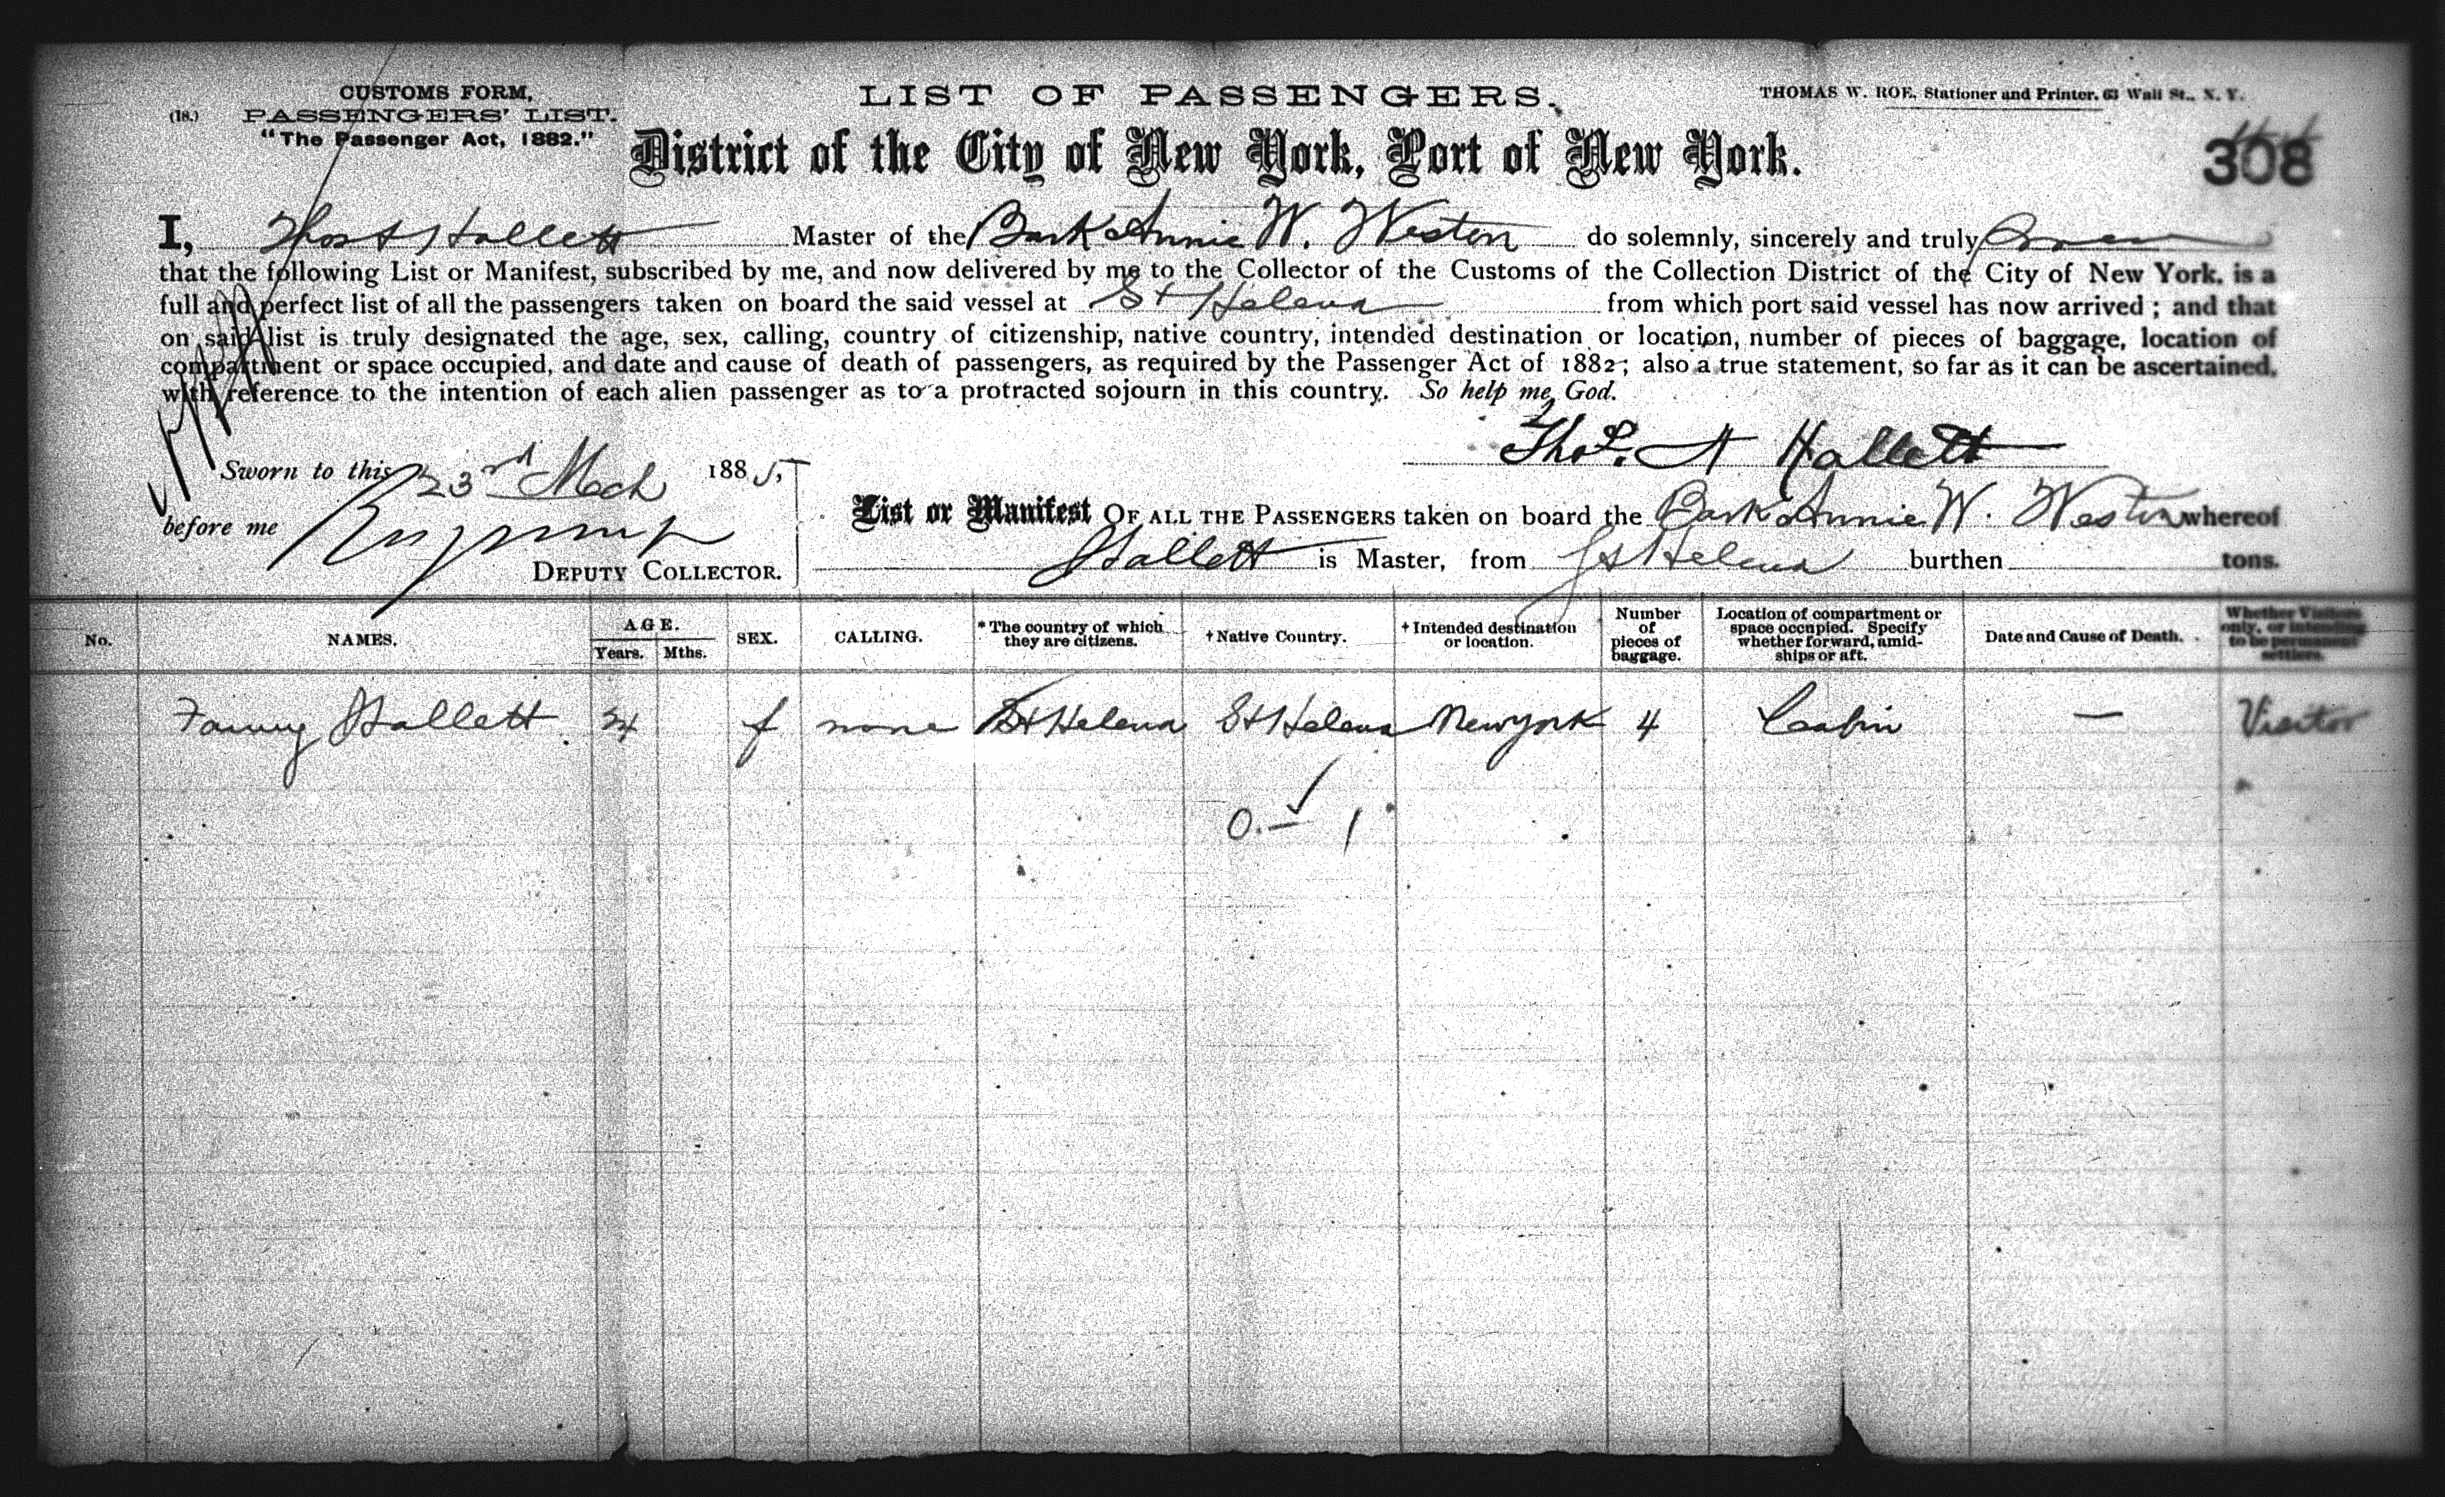 CUSTOMS FORM,
(18.) PASSENGERS' LIST.
"The Passenger Act, 1882."
LIST OF PASSENGERS.
THOMAS W. ROE, Stationer and Printer, 63 Wall St., N. Y.
District of the City of New York, Port of New York.
308
I, Thos A Hallett Master of the Bark Annie W. Weston do solemnly, sincerely and truly swear
that the following List or Manifest, subscribed by me, and now delivered by me to the Collector of the Customs of the Collection District of the City of New York, is a
full and perfect list of all the passengers taken on board the said vessel at St Helena from which port said vessel has now arrived; and that
on said list is truly designated the age, sex, calling, country of citizenship, native country, intended destination or location, number of pieces of baggage, location of
compartment or space occupied, and date and cause of death of passengers, as required by the Passenger Act of 1882; also a true statement, so far as it can be ascertained,
with reference to the intention of each alien passenger as to a protracted sojourn in this country. So help me God.
Thos. A Hallett
Sworn to this 23rd Mch 1885,
before me
DEPUTY COLLECTOR.
List or Manifest OF ALL THE PASSENGERS taken on board the Bark Annie W. Weston whereof
Hallett is Master, from St Helena burthen tons.
No. NAMES. AGE. Years. Mths. SEX. CALLING. * The country of which they are citizens. † Native Country. † Intended destination or location. Number of pieces of baggage. Location of compartment or space occupied. Specify whether forward, amidships or aft. Date and Cause of Death. Whether Visitors only, or intending to be permanent settlers.
Fanny Hallett 24 f none St Helena St Helena New York 4 Cabin — Visitor
0. — 1